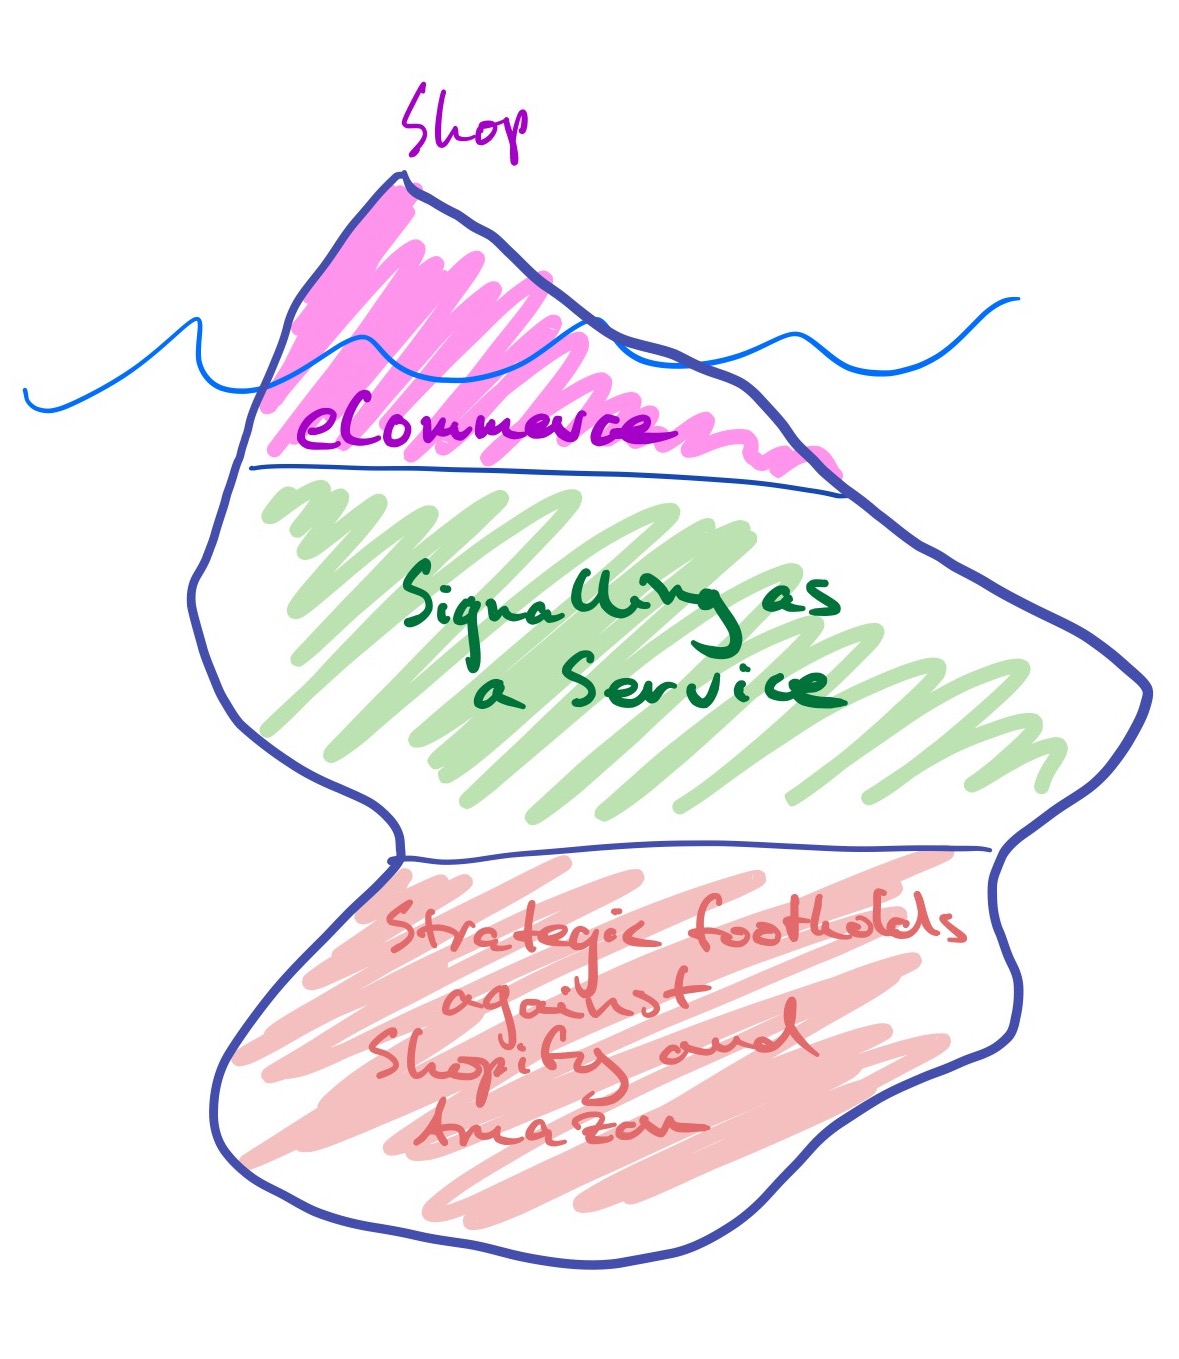 Shop
eCommerce
Signalling as
a Service
Strategic footholds
against
Shopify and
Amazon